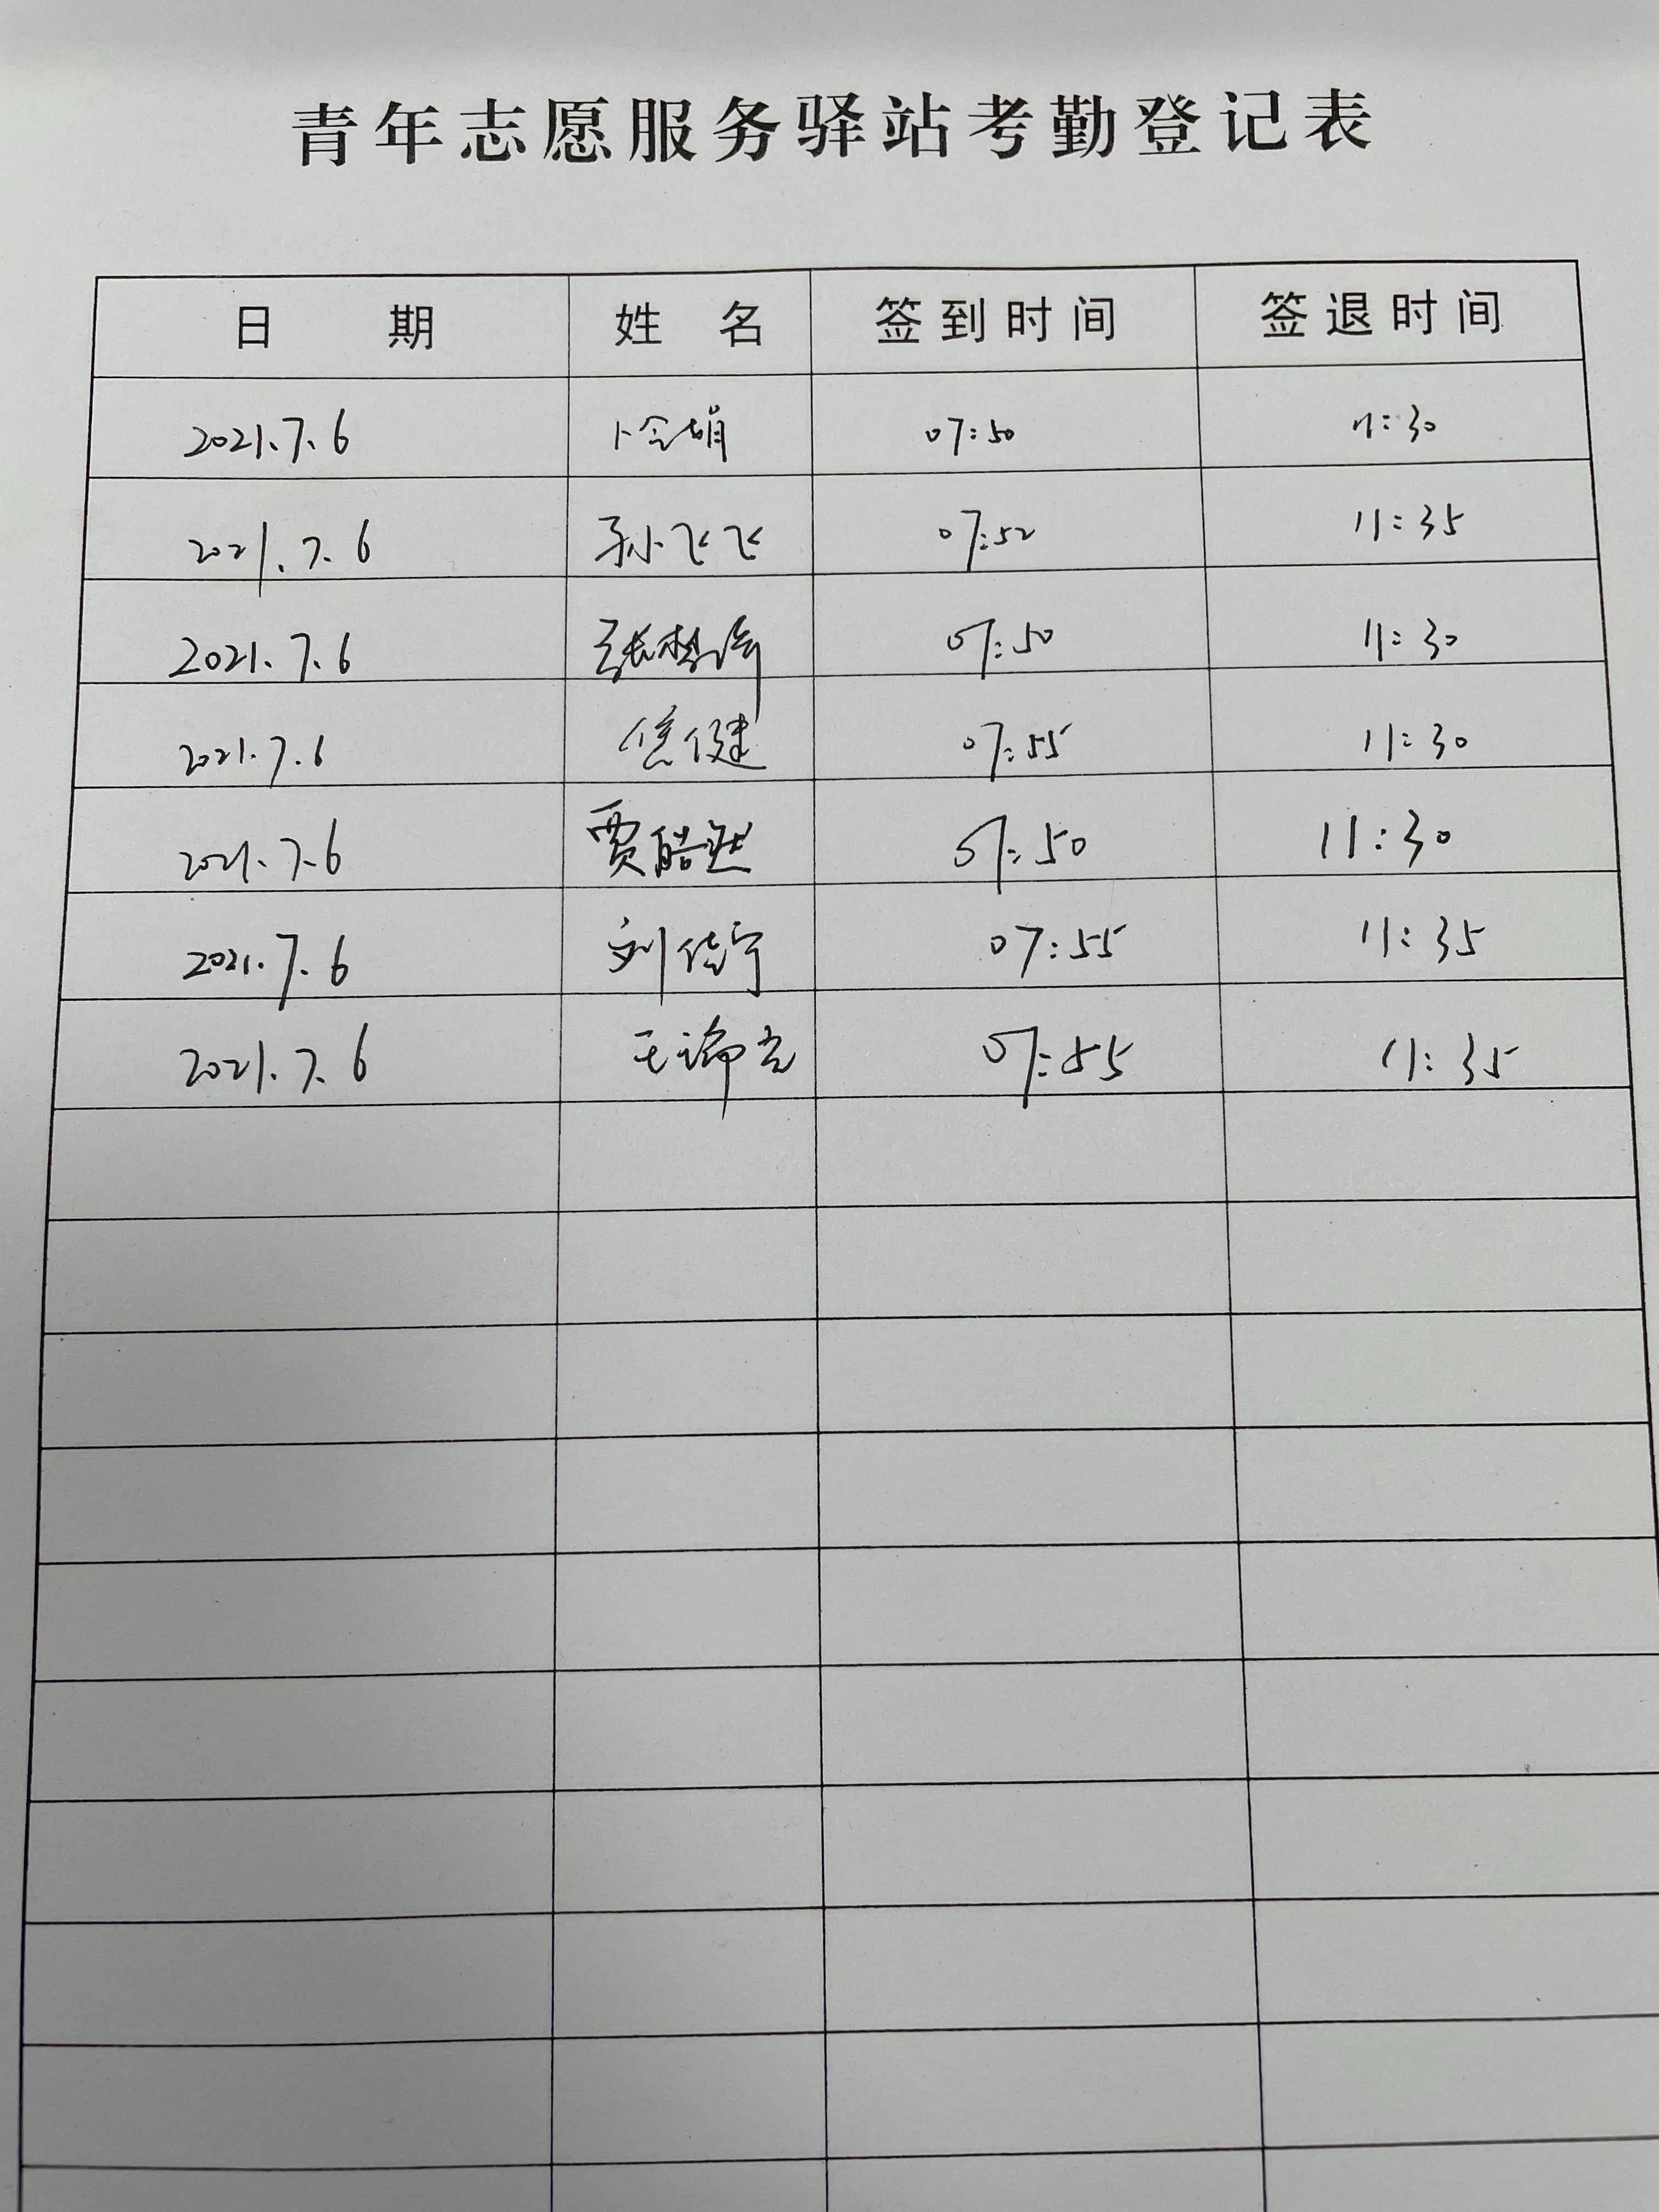 青年志愿服务驿站考勤登记表
日期 姓名 签到时间 签退时间
2021.7.6 07:50 11:30
2021.7.6 孙飞飞 07:52 11:35
2021.7.6 07:50 11:30
2021.7.6 07:55 11:30
2021.7.6 贾皓 07:50 11:30
2021.7.6 刘佳宁 07:55 11:35
2021.7.6 07:55 11:35